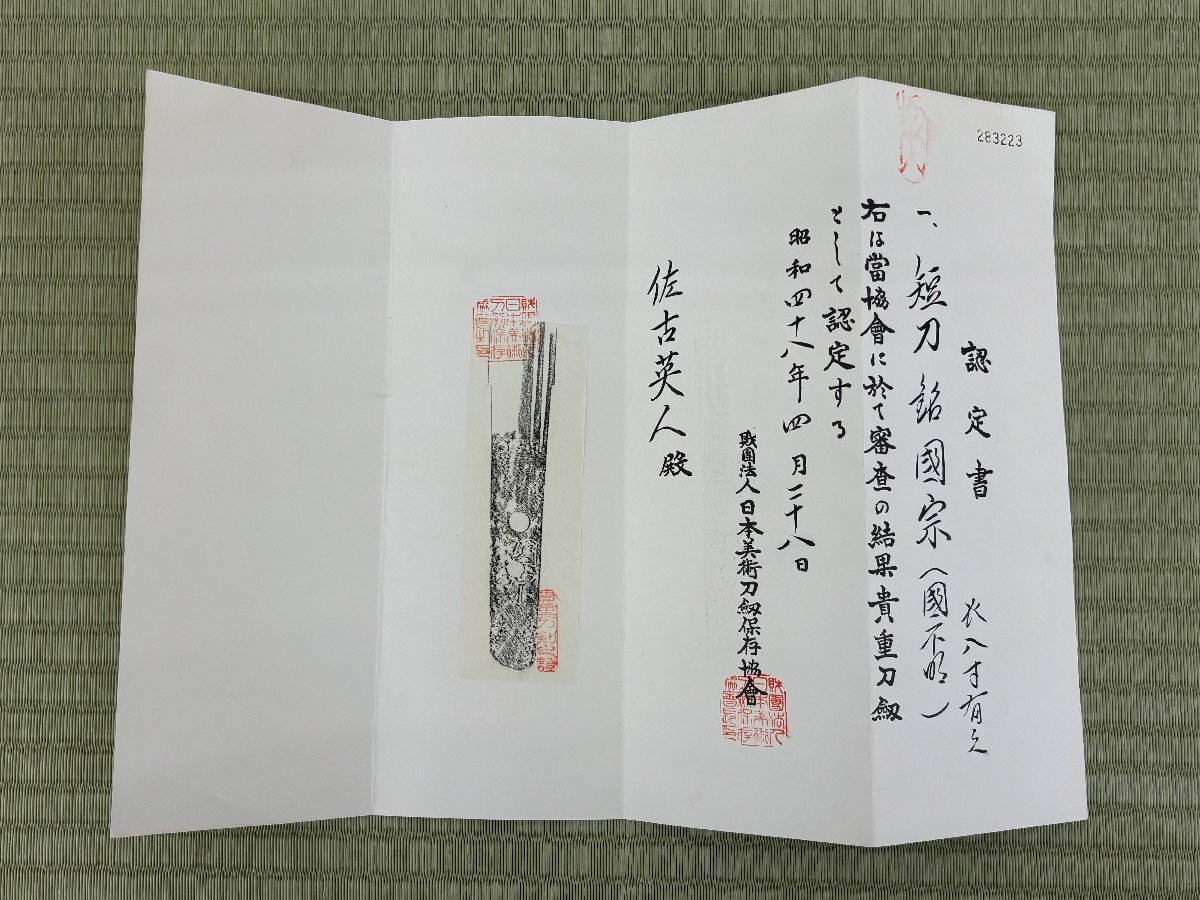 283223
認定書
一、短刀 銘 國宗(國不明)
長八寸有之
右は當協會に於て審査の結果貴重刀劔
として認定する
昭和四十八年四月二十八日
財團法人日本美術刀劔保存協會
佐古英人殿